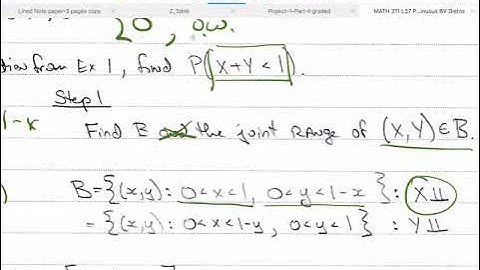 Lined Note paper-3 pages copy Z_Table Project-1-Part-II graded MATH 211 L37 P...inuous BV Distns
20, o.w.
tion from Ex 1, find P(X+Y<1).
Step 1
1-x
Find B the joint RANGE of (X,Y)∈B.
B={(x,y): 0<x<1, 0<y<1-x}: X⊥⊥
={(x,y): 0<x<1-y, 0<y<1}: Y⊥⊥